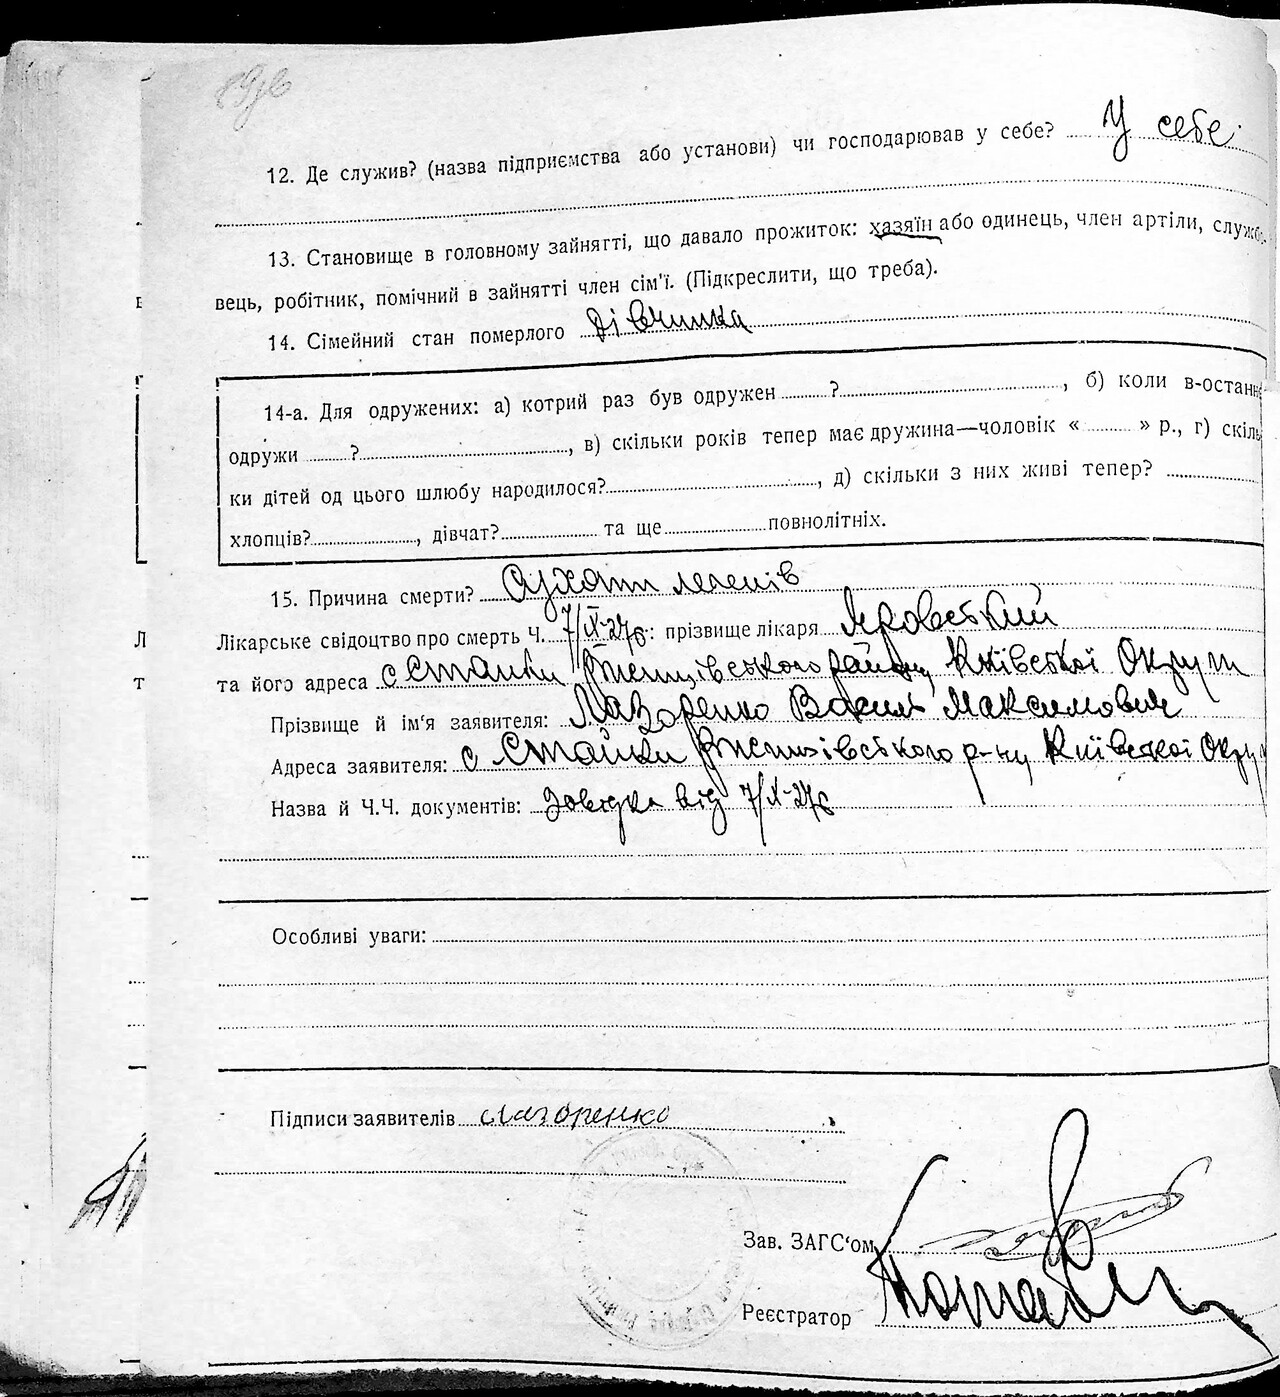 12. Де служив? (назва підприємства або установи) чи господарював у себе? У себе
13. Становище в головному зайнятті, що давало прожиток: хазяїн або одинець, член артіли, службо-
вець, робітник, помічний в зайнятті член сім'ї. (Підкреслити, що треба).
14. Сімейний стан померлого дівчинка
14-а. Для одружених: а) котрий раз був одружен ? , б) коли в-останнє
одружи ? , в) скільки років тепер має дружина—чоловік « » р., г) скіль
ки дітей од цього шлюбу народилося? , д) скільки з них живі тепер?
хлопців? , дівчат? та ще повнолітніх.
15. Причина смерти? Сухоти легенів
Лікарське свідоцтво про смерть Ч. 7/IX-27б: прізвище лікаря Яровський
та його адреса с Стайки Ржищівського району Київської Округи
Прізвище й ім'я заявителя: Лазоренко Василь Максимович
Адреса заявителя: с Стайки Ржищівського р-ну Київської Округ
Назва й Ч.Ч. документів: Довідка від 7/IX-27б
Особливі уваги:
Підписи заявителів Лазоренко
Зав. ЗАГС'ом
Реєстратор